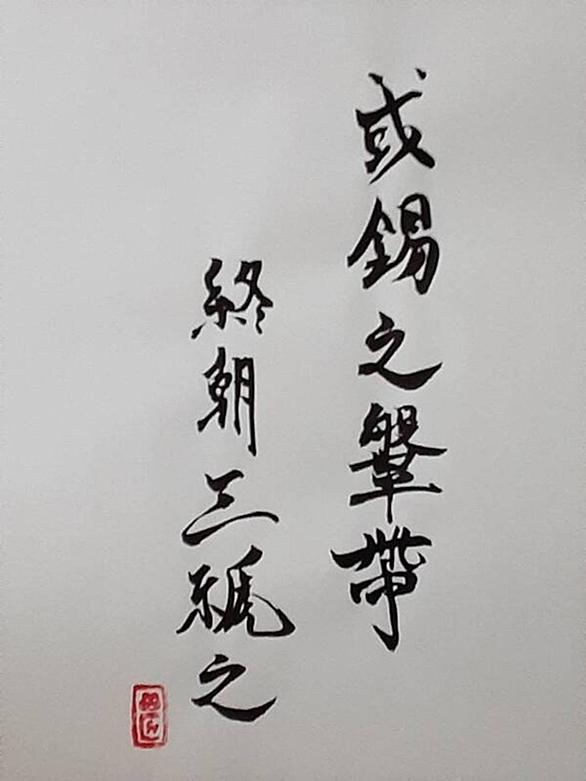 或錫之鞶帶
終朝三褫之